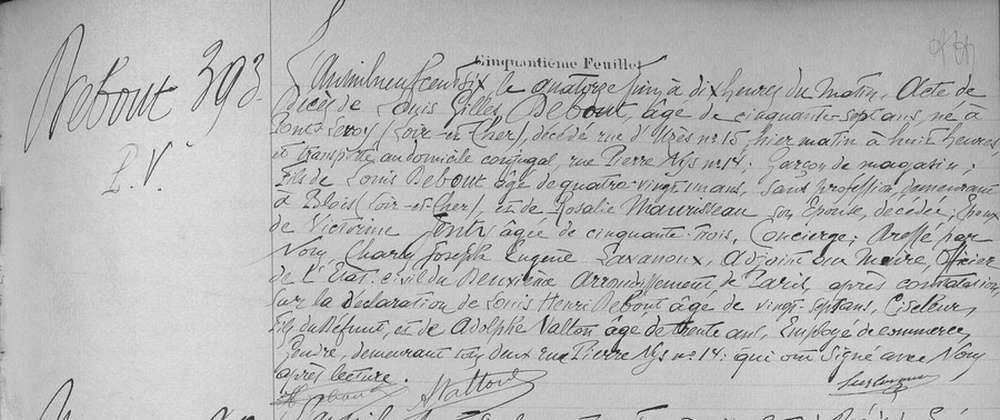 Cinquantième Feuillet
Debout 393
P.V.
L'an mil neuf cent six, le quatorze Juin à dix heures du Matin. Acte de
Décès de Louis Gilles Debout, âgé de cinquante-sept ans, né à
Pont-Levoy (Loir-et-Cher), décédé rue d'Uzès nº 15 hier matin à huit heures,
et transporté au domicile conjugal, rue Pierre Nys nº 14; Garçon de magasin;
Fils de Louis Debout âgé de quatre-vingt-un ans, sans profession, demeurant
à Blois (Loir-et-Cher), et de Rosalie Maurisseau son Epouse, décédée; Epoux
de Victorine âgée de cinquante-trois, Concierge; Dressé par
Nous, Charles Joseph Eugène Adjoint au Maire, Officier
de l'Etat-civil du Deuxième Arrondissement de Paris, après constatation,
sur la Déclaration de Louis Henri Debout âgé de vingt-sept ans, Ciseleur,
Fils du Défunt, et de Adolphe Vallon âgé de trente ans, Employé de commerce,
Gendre, demeurant tous deux rue Pierre Nys nº 14: qui ont signé avec Nous
après lecture.